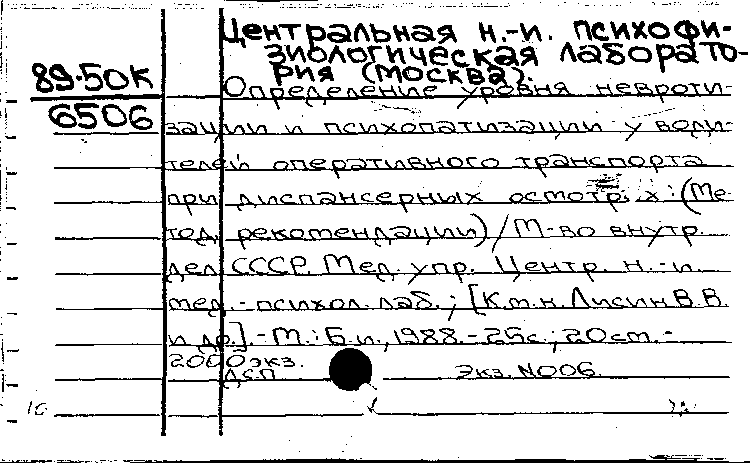 Центральная н.-и. психофи-
зиологическая лаборато-
рия (Москва).
89-50К
6506
Определение уровня невроти-
зации и психопатизации у води-
телей оперативного транспорта
при диспансерных осмотрах: (Ме-
тод. рекомендации) / М-во внутр.
дел СССР. Мед. упр. Центр. н.-и.
мед.-психол. лаб.; [К.м.н. Лисин В.В.
и др.]. - М.: Б.и., 1988. - 25с.; 20см. -
2000экз.
ДСП Экз. N006
10